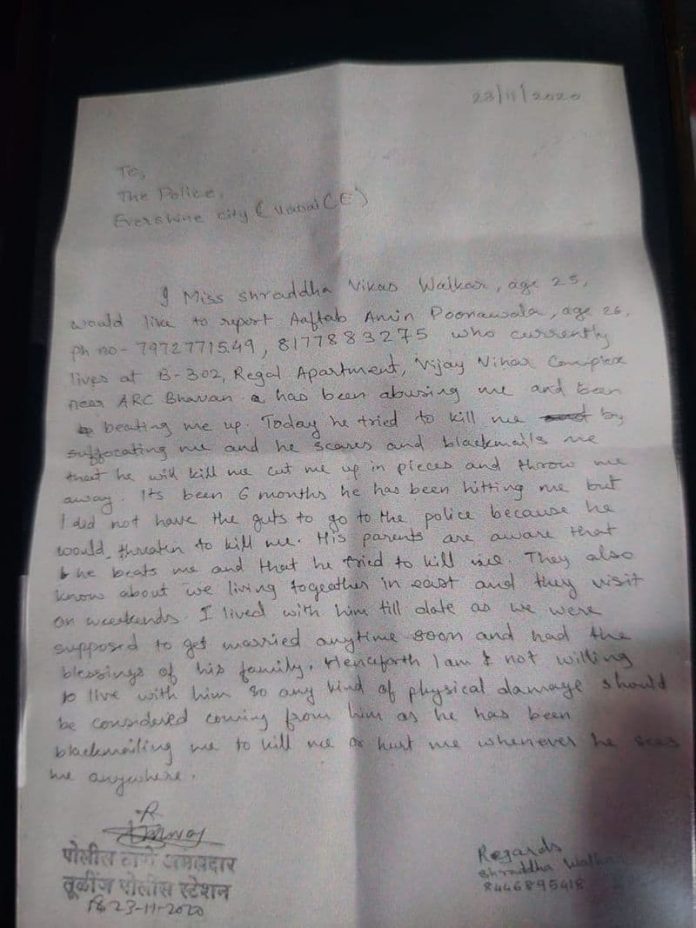 23/11/2020
To,
The Police,
Evershine city (Vasai (E)
I Miss Shraddha Vikas Walkar, age 25,
would like to report Aaftab Amin Poonawala, age 26,
Ph no- 7972771549, 8177883275 who currently
lives at B-302, Regal Apartment, Vijay Vihar Complex
near ARC Bhavan has been abusing me and been
beating me up. Today he tried to kill me by
suffocating me and he scares and blackmails me
that he will kill me cut me up in pieces and throw me
away. Its been 6 months he has been hitting me but
I did not have the guts to go to the police because he
would threaten to kill me. His parents are aware that
he beats me and that he tried to kill me. They also
know about we living togeather in east and they visit
on weekends. I lived with him till date as we were
supposed to get married anytime soon and had the
blessings of his family. Henceforth I am not willing
to live with him so any kind of physical damage should
be considered coming from him as he has been
blackmailing me to kill me or hurt me whenever he sees
me anywhere.
पोलीस ठाणे अमलदार
तूळींज पोलीस स्टेशन
23-11-2020
Regards
Shraddha Walkar
8446895418